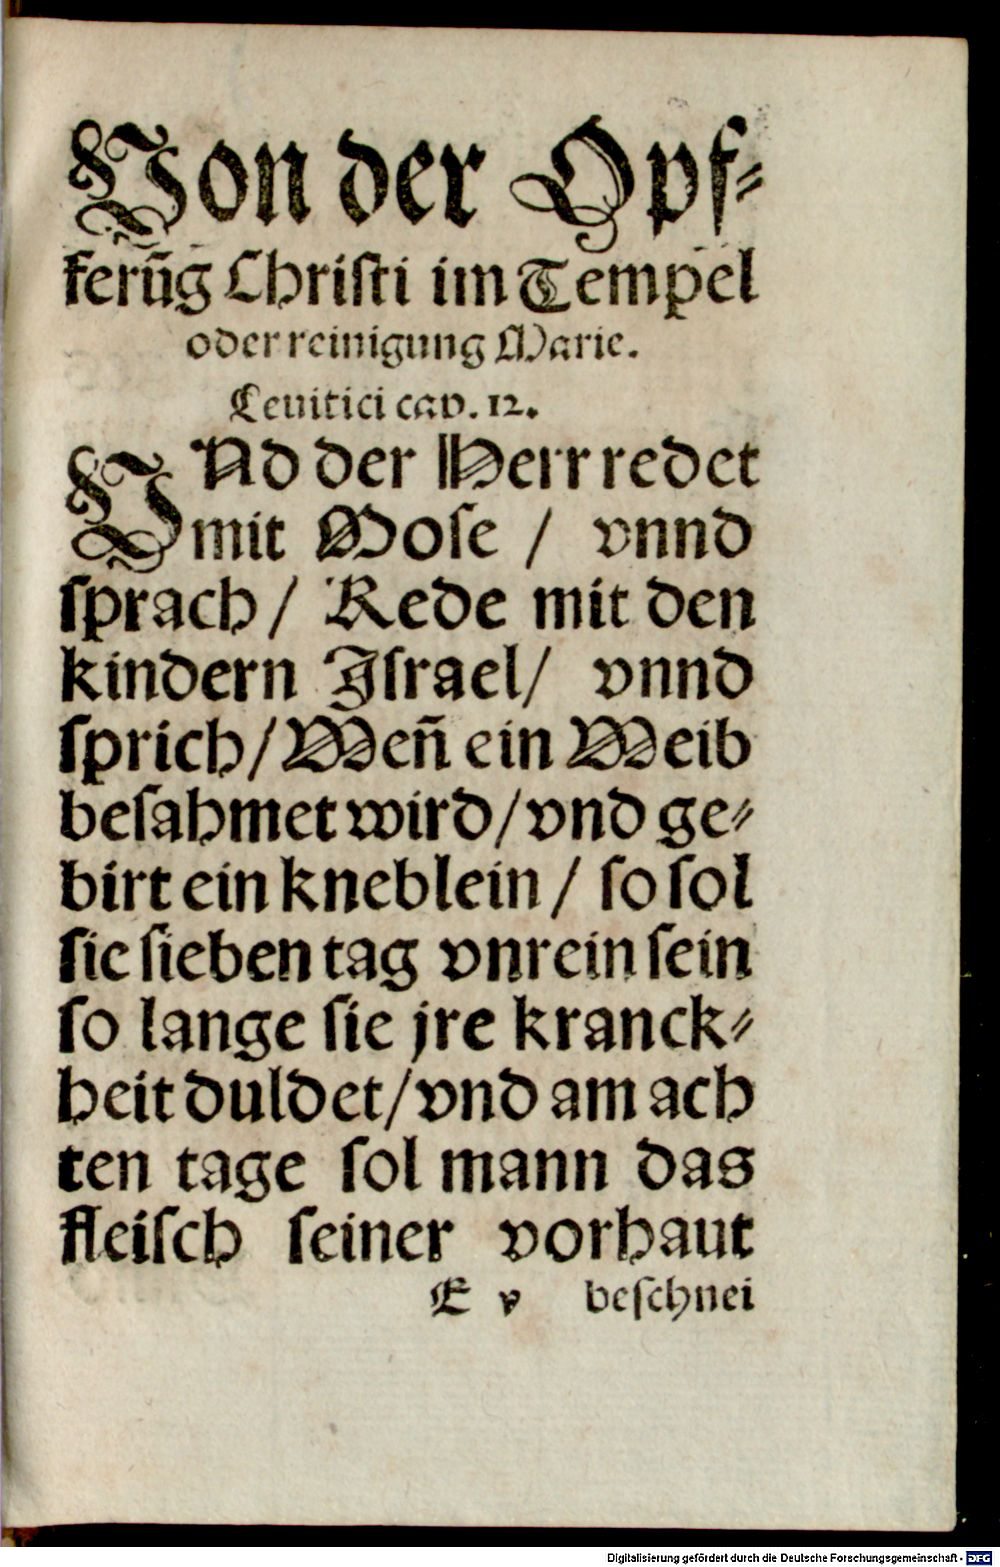 Von der Opf⸗
ferũg Chriſti im Tempel
oder reinigung Marie.
Leuitici cap. 12.
VNd der Herr redet
mit Moſe / vnnd
ſprach / Rede mit den
kindern Jſrael / vnnd
ſprich / Weñ ein Weib
beſahmet wird / vnd ge⸗
birt ein kneblein / ſo ſol
ſie ſieben tag vnrein ſein
ſo lange ſie jre kranck⸗
heit duldet / vnd am ach
ten tage ſol mann das
fleiſch ſeiner vorhaut
E v beſchnei
Digitalisierung gefördert durch die Deutsche Forschungsgemeinschaft - DFG